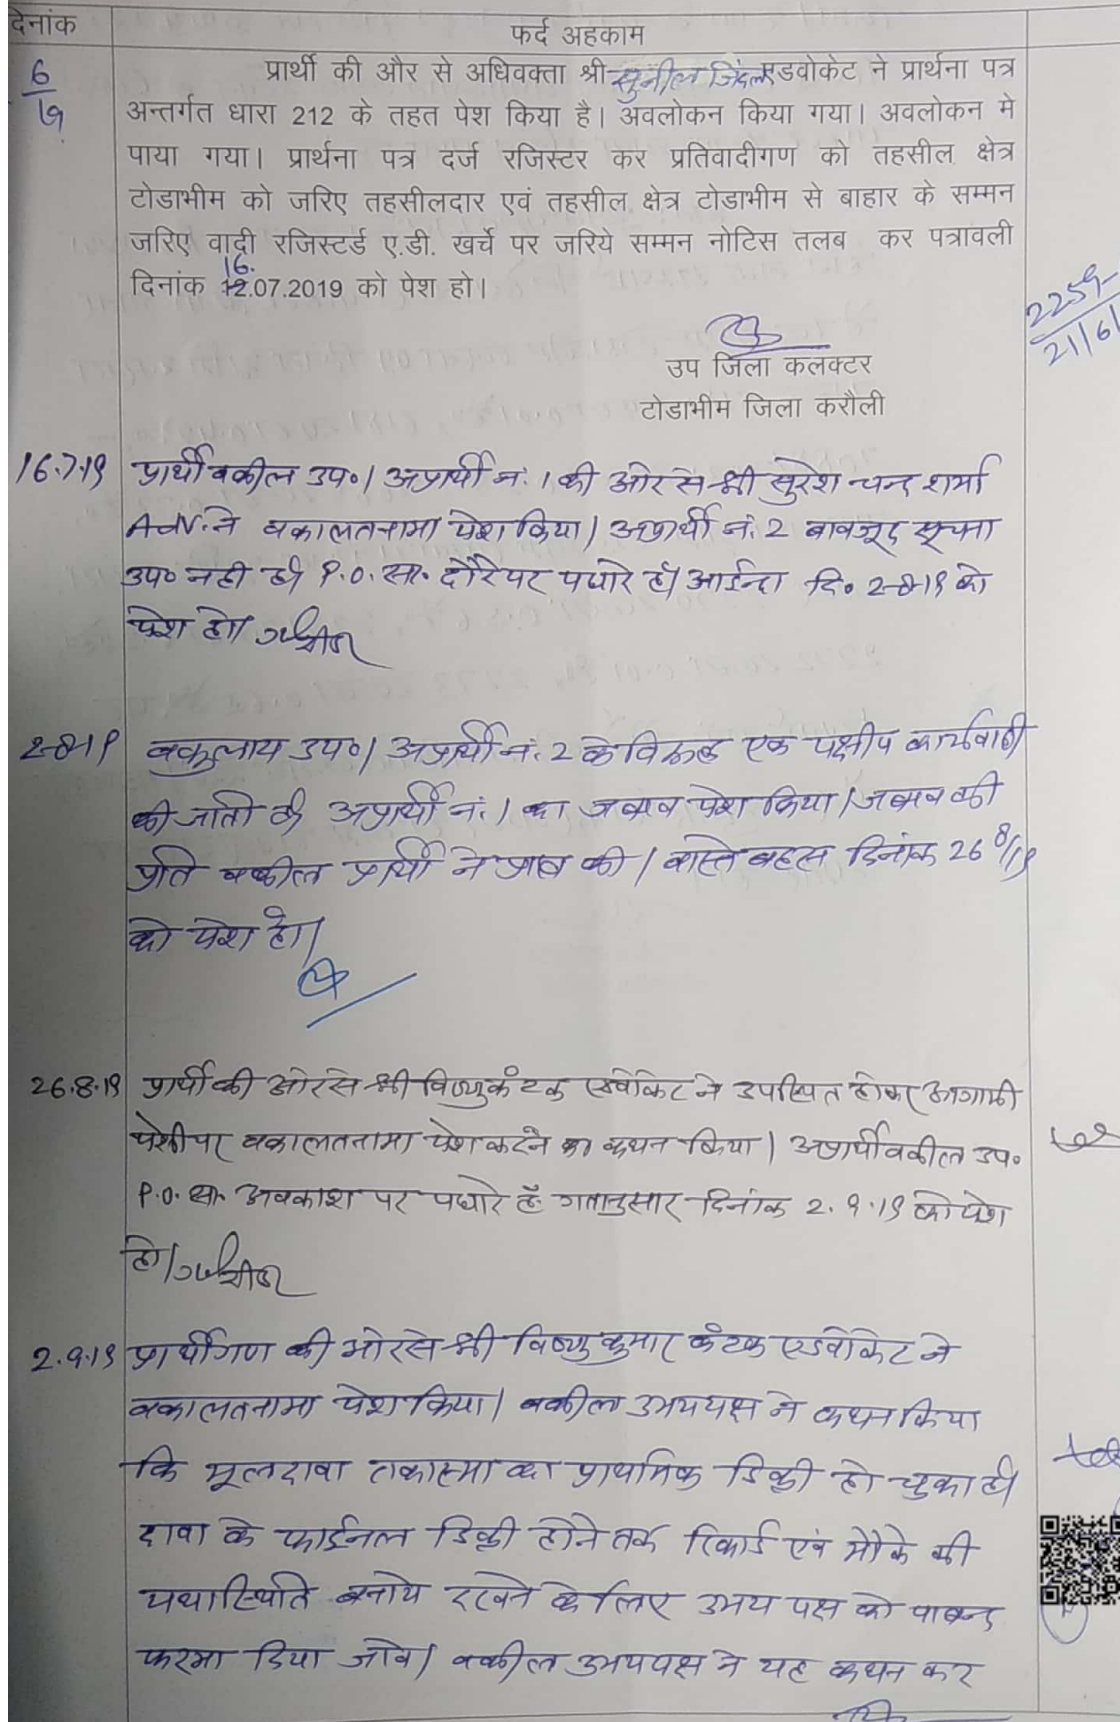 देनांक
फर्द अहकाम
6
19
प्रार्थी की और से अधिवक्ता श्री सुनील जिंदल एडवोकेट ने प्रार्थना पत्र
अन्तर्गत धारा 212 के तहत पेश किया है। अवलोकन किया गया। अवलोकन मे
पाया गया। प्रार्थना पत्र दर्ज रजिस्टर कर प्रतिवादीगण को तहसील क्षेत्र
टोडाभीम को जरिए तहसीलदार एवं तहसील क्षेत्र टोडाभीम से बाहार के सम्मन
जरिए वादी रजिस्टर्ड ए.डी. खर्चे पर जरिये सम्मन नोटिस तलब कर पत्रावली
16.
दिनांक 12.07.2019 को पेश हो।
2259
21/6/
उप जिला कलक्टर
टोडाभीम जिला करौली
16.7.19 प्रार्थी वकील उप०। अप्रार्थी नं. 1 की ओर से श्री सुरेश चन्द शर्मा
Adv. ने वकालतनामा पेश किया। अप्रार्थी नं. 2 बावजूद सूचना
उप० नही है। P.O. सा. दौरे पर पधारे है। आईन्दा दि० 2-8-19 को
पेश हो।
2-8-19 वकुलाय उप०। अप्रार्थी नं. 2 के विरूद्ध एक पक्षीय कार्यवाही
की जाती है। अप्रार्थी नं. 1 का जबाव पेश किया। जबाव की
प्रति वकील प्रार्थी ने प्राप्त की। वास्ते बहस दिनांक 26 8/19
को पेश हो।
26.8.19 प्रार्थी की ओर से श्री विष्णु कंटक एडवोकेट ने उपस्थित होकर आगामी
पेशी पर वकालतनामा पेश करने का कथन किया। अप्रार्थी वकील उप०
P.O. सा. अवकाश पर पधारे है। गतानुसार दिनांक 2.9.19 को पेश
हो।
2.9.19 प्रार्थीगण की ओर से श्री विष्णु कुमार कंटक एडवोकेट ने
वकालतनामा पेश किया। वकील उभयपक्ष ने कथन किया
कि मूलदावा तकास्मा का प्राथमिक डिक्री हो चुका है।
दावा के फाईनल डिक्री होने तक रिकार्ड एवं मौके की
यथास्थिति बनाये रखने के लिए उभय पक्ष को पाबन्द
फरमा दिया जावे। वकील उभयपक्ष ने यह कथन कर